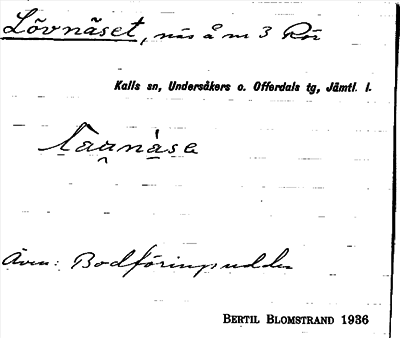 Lövnäset, näs å m 3 Rör
Kalls sn, Undersåkers o. Offerdals tg, Jämtl. l.
Även: Bodföringsudden
BERTIL BLOMSTRAND 1936